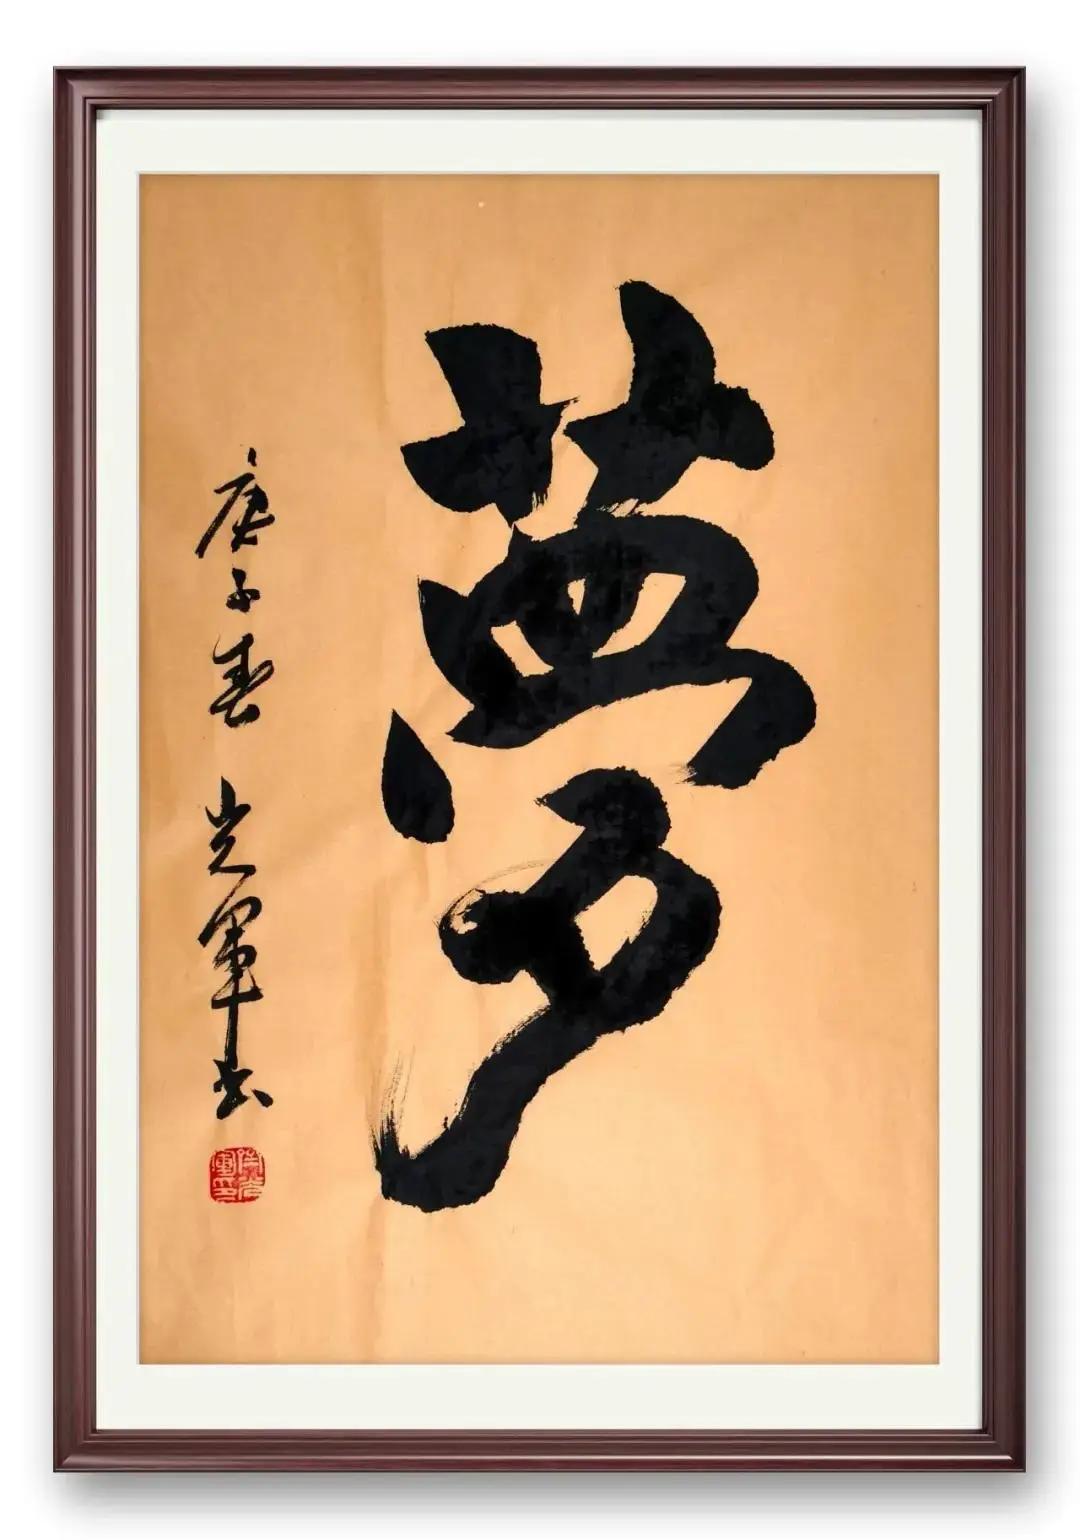 夢
庚子春 光軍书